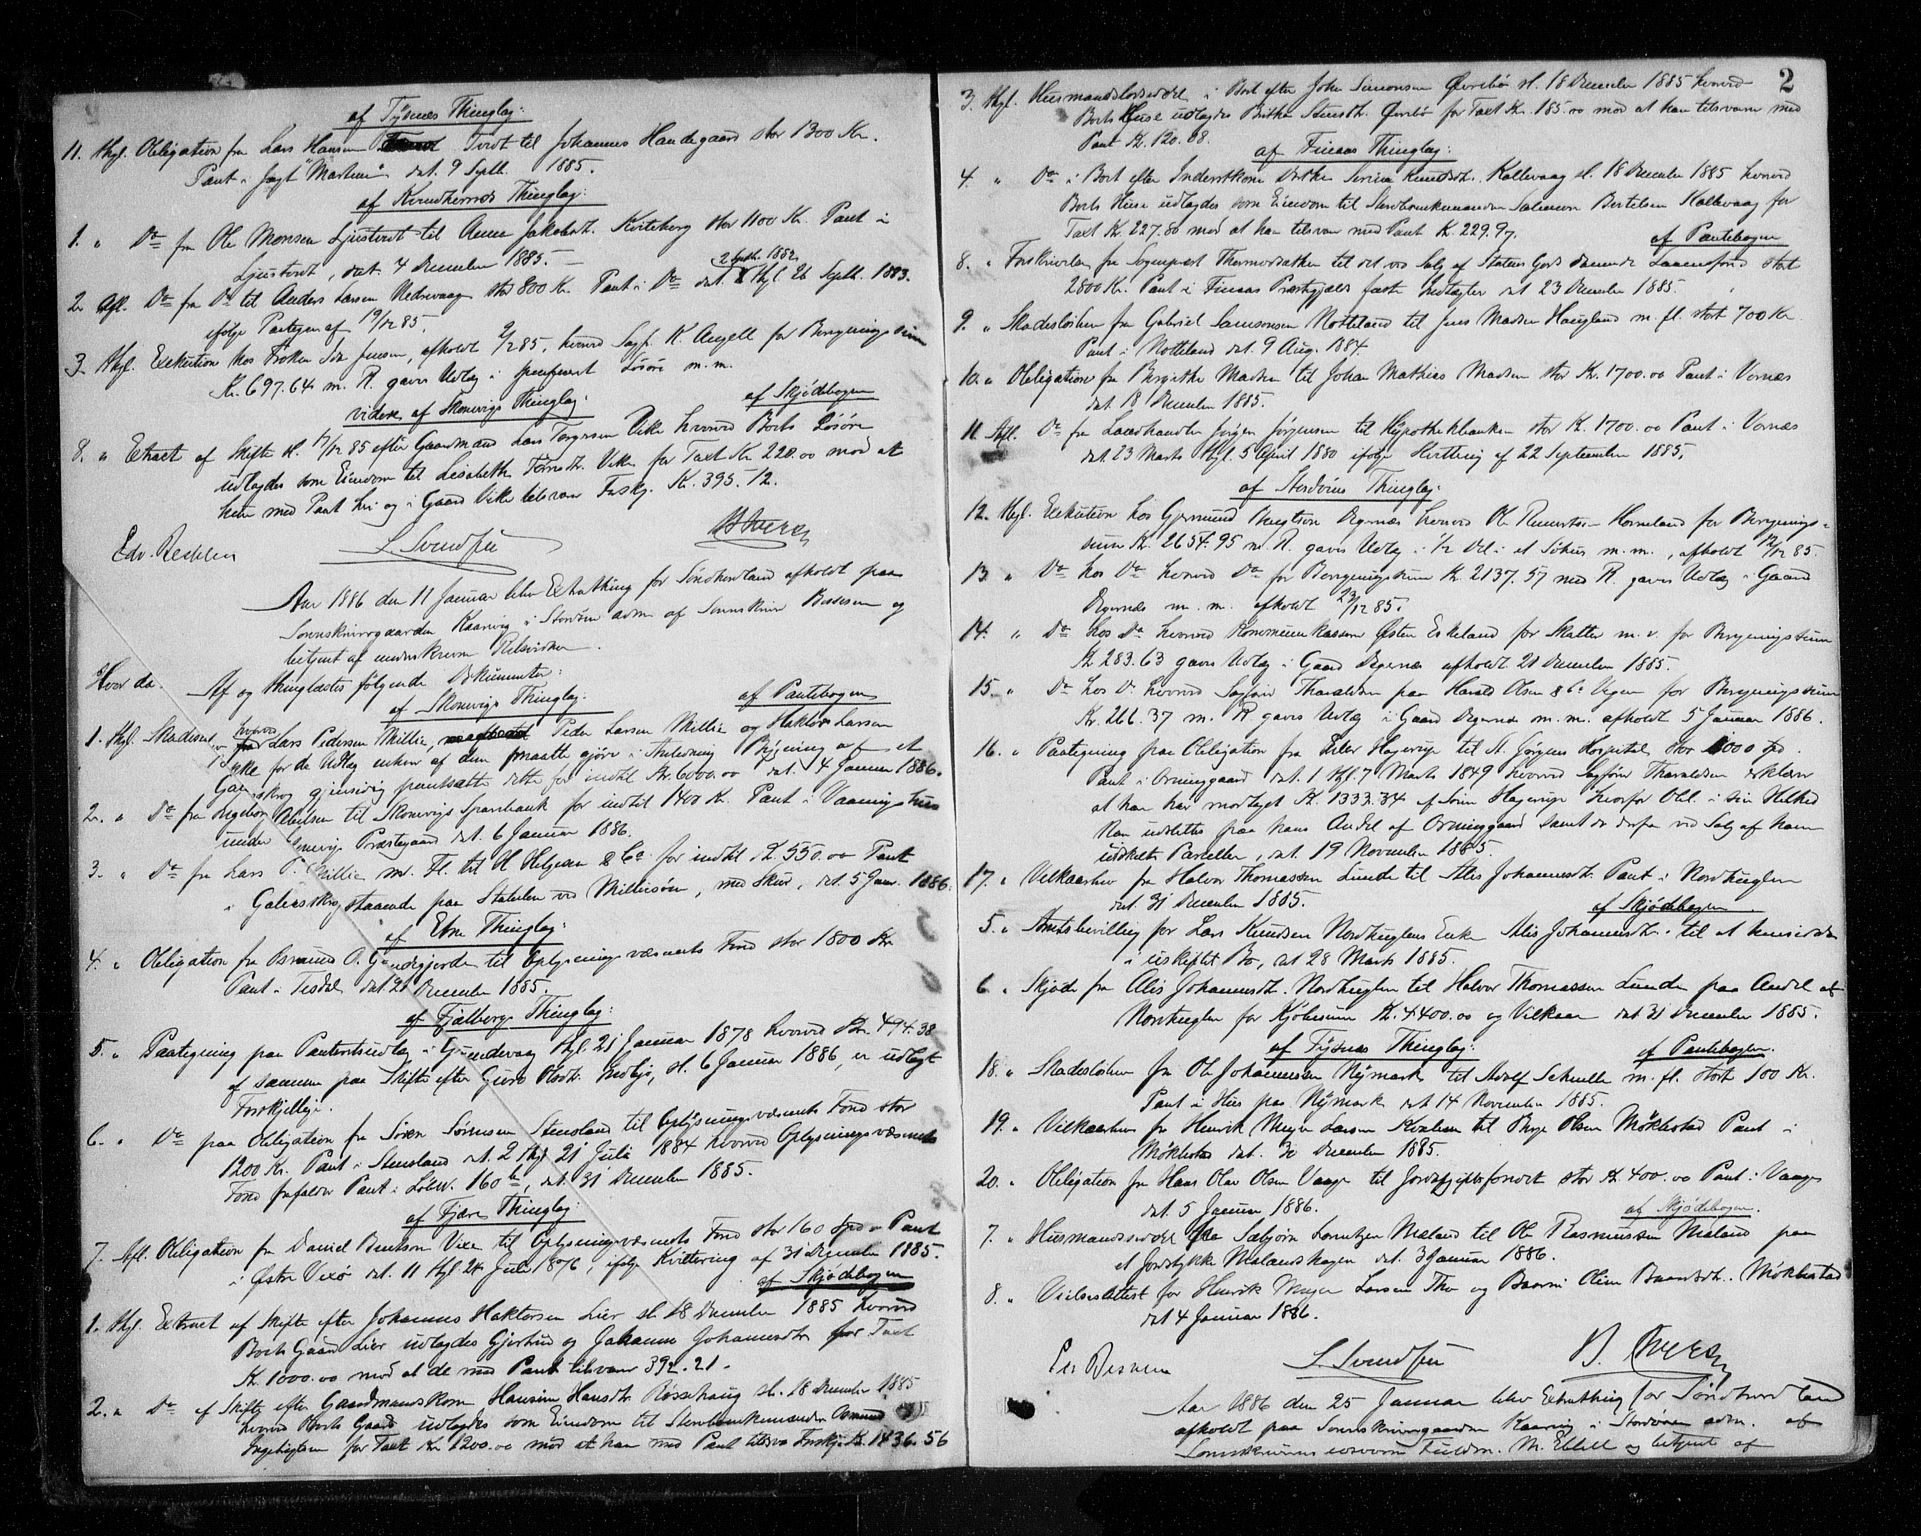 af Tysnes Thinglag:
11. thgl. Obligation fra Lars Hansen Tvedt til Johannes Handegaard stor 1300 Kr.
Pant i Jagt "Martin", dat. 9 Septb. 1885.
af Kvindherreds Thinglag:
1. " Do fra Ole Monsen Ljustvedt til Anna Jakobsdt. Kviteberg stor 1100 Kr. Pant i
Ljustvedt, dat. 4 December 1885.
2. Afl. Do fra Do til Anders Larsen Nedrevaage stor 800 Kr. Pant i Do dat. 2 Septb. 1882 thgl. 26 Septb. 1883.
ifølge Paategn. af 19/12 85.
3. thgl. Exekution hos Frøken Ida Jensen, afholdt 2/12 85, hvorved Sagf. K. Angell for Bergningssum
Kr. 697.64 m. R. gaves Udlæg i specificeret Løsøre m.m.
videre af Skonevigs Thinglag: af Skjødebogen
8. " Extract af Skifte sl. 17/12 85 efter Gaardmand Lars Torgersen Vike hvorved Boets Løsøre
udlagdes som Eiendom til Lisabeth Tørresdt. Vike for Taxt Kr. 220.00 mod at
hun med Pant heri og i Gaard Vike tilsvarer Forskj. Kr. 395.12.
L. Svendsen
Aar 1886 den 11 Januar blev Extrathing for Søndhordland afholdt paa
Sorenskrivergaarden Kaarevig i Stordøen adm. af Sorenskriver Bessesen og
betjent af underskrevne Retsvidner.
Hvor da. Af og thinglæstes følgende Dokumenter:
af Skonevigs Thinglag: af Pantebogen
1. thgl. Skadesbr. hvorved Lars Pedersen Millie, Peder Larsen Millie og Haktor Larsen
Lykke for de Udlæg enhver af dem maatte gjøre i Anledning Bygning af et
Galeasskrog gjensidig pantsætte dette for indtil Kr. 6000.00 dat. 4 Januar 1886.
2. " Do fra Ingeborg Abelsen til Skonevigs Sparebank for indtil 1400 Kr. Pant i Vaaningshus
under Skonevigs Præstegaard dat. 6 Januar 1886.
3. " Do fra Lars P. Millie m. Fl. til H. Helgesen & Co. for indtil Kr. 550.00 Pant
i Galeasskrog staaende paa Stabelen ved Milliesøen, med Skur, dat. 5 Janr. 1886.
af Etne Thinglag:
4. " Obligation fra Asmund O. Gundegjerde til Oplysningsvæsenets Fond stor 1800 Kr.
Pant i Tesdal dat. 21 December 1885.
af Fjelbergs Thinglag:
5. " Paategning paa Panteretsudlæg i Gjundevaag thgl. 21 Januar 1878 hvorved Kr. 494.38
af samme paa Skifte efter Guro Olsdt. Indbjø, sl. 6 Januar 1886, er udlagt
Forskjellige.
6. " Do paa Obligation fra Sören Sørensen Stensland til Oplysningsvæsenets Fond stor
1200 Kr. Pant i Stensland dat. 2 thgl. 21 Juli 1884 hvorved Oplysningsvæsenets
Fond frafalder Pant i Løbn. 160 b, dat. 31 December 1885.
af Fjære Thinglag:
7. Afl. Obligation fra Daniel Bentsen Vixe til Oplysningsvæsenets Fond stor 160 Spd. Pant
i Østre Vixø dat. 11 thgl. 24 Juli 1876, ifølge Kvittering af 31 December 1885.
af Skjødebogen
1. thgl. Extract af Skifte efter Johannes Haktorsen Lier sl. 18 December 1885 hvorved
Boets Gaard Lier udlagdes Gjertrud og Johanne Johannesdtr for Taxt
Kr. 1000.00 mod at de med Pant tilsvarer 392.21.
2. " Do af Skifte efter Gaardmandskone Hansine Hansdt. Rossehaug sl. 18 December 1885
hvorved Boets Gaard udlagdes som Eiendom til Sterbo enkemanden Asmund
for Taxt Kr. 1200.00 mod at han med Pant tilsvarer Forskj. Kr. 1436.56
2
3. thgl. Husmandsfæsteseddel i Boet efter John Simonsen Øvrebø sl. 18 December 1885 hvorved
Boets Huse udlagdes Brithe Stensdt. Øvrebø for Taxt Kr. 185.00 mod at han tilsvarer med
Pant Kr. 120.08.
af Finaas Thinglag:
4. " Do i Boet efter Inderstkone Dorthe Serine Knudsdt. Kallevaag sl. 18 December 1885 hvorved
Boets Huse udlagdes som Eiendom til Sterboenkemanden Salemon Bertelsen Kallevaag for
Taxt Kr. 227.80 mod at han tilsvarer med Pant Kr. 229.97.
af Pantebogen
8. " Forskrivelse fra Sogneprest Thormodsæther til det ved Salg af Statens Gods dannede Laanefond stort
2800 Kr. Pant i Finaas Præstegjelds faste Indtægter dat. 23 December 1885.
9. " Skadesløsbrev fra Gabriel Samsonsen Notteland til Jens Madsen Haugland m. fl. stort 700 Kr.
Pant i Notteland dat. 9 Aug. 1884.
10. " Obligation fra Birgithe Madsen til Johan Mathias Madsen stor Kr. 1700.00 Pant i Vornæs
dat. 18 December 1885.
11. Afl. Do fra Landhandler Jørgen Jørgensen til Hypothekbanken stor Kr. 1700.00 Pant i Vornæs
dat. 23 Marts thgl. 5 April 1880 ifølge Kvittering af 22 September 1885.
af Stordøens Thinglag:
12. thgl. Exekution hos Gjermund Bengtson Digernæs hvorved Ole Horneland for Bergnings-
sum Kr. 2654.95 m. R. gaves Udlæg i 1/2 Del i et Søhus m.m., afholdt 12/12 85.
13. " Do hos Do hvorved Do for Bergningssum Kr. 2137.57 med R. gaves Udlæg i Gaard
Digernæs m. m. afholdt 23/12 85.
14. " Do hos Do hvorved Kommunekasserer Østen Eskeland for Skatter m. v. for Bergningssum
Kr. 283.63 gaves Udlæg i Gaard Digernæs afholdt 21 December 1885.
15. " Do hos Do hvorved Sagfører Tharaldsen paa Harald Olsen & Co. Vegne for Bergningssum
Kr. 266.37 m. R. gaves Udlæg i Gaard Digernæs m. m. afholdt 5 Januar 1886.
16. " Paategning paa Obligation fra Hagerup til St. Jørgens Hospital stor 1000 Spd.
Pant i Orninggaard dat. 1 thgl. 7 Marts 1849 hvorved Sagfører Tharaldsen erklærer
at han har modtaget Kr. 1333.34 af Søren Hagerup hvorfor Obl. i sin Helhed
kan udslettes paa hans Andel af Orninggaard samt de derfra ved Salg af ham
udskilte Parceller, dat. 19 November 1885.
17. " Vilkaarsbrev fra Halvor Thomassen Lunde til Alis Johannesdt. Pant i Nordhuglen
dat. 31 December 1885.
af Skjødebogen
5. " Amtsbevilling for Lars Knudsen Nordhuglens Enke Alis Johannesdt. til at hensidde
i uskiftet Bo, dat. 28 Marts 1885.
6. " Skjøde fra Alis Johannesdt. Nordhuglen til Halvor Thomassen Lunde paa Andel af
Nordhuglen for Kjøbesum Kr. 4400.00 og Vilkaar dat. 31 December 1885.
af Tysnes Thinglag: af Pantebogen.
18. " Skadesløsbrev fra Ole Johannessen Nymark til Adolf Schnelle m. fl. stort 100 Kr.
Pant i Hus paa Nymark dat. 14 November 1885.
19. " Vilkaarsbrev fra Henrik Meyer Larsen Kvalem til Olsen Møklestad Pant i
Møklestad dat. 30 December 1885.
20. " Obligation fra Hans Olai Olsen Vaage til Jordafgiftsfondet stor Kr. 400.00 Pant i Vaage
dat. 5 Januar 1886.
af Skjødebogen.
7. " Husmandsseddel fra Sæbjørn Lorentzen Meland til Ole Rasmussen Meland paa
et Jordstykke Melandshagen dat. 3 Januar 1886.
8. " Vielsesattest for Henrik Meyer Larsen Tho og Olsen Møklestad
dat. 4 Januar 1886.
L. Svendsen
Aar 1886 den 25 Januar blev Extrathing for Søndhordland
afholdt paa Sorenskrivergaarden Kaarevig i Stordøen adm. af
Sorenskriverens edsvorne Fuldm. M. og betjent af